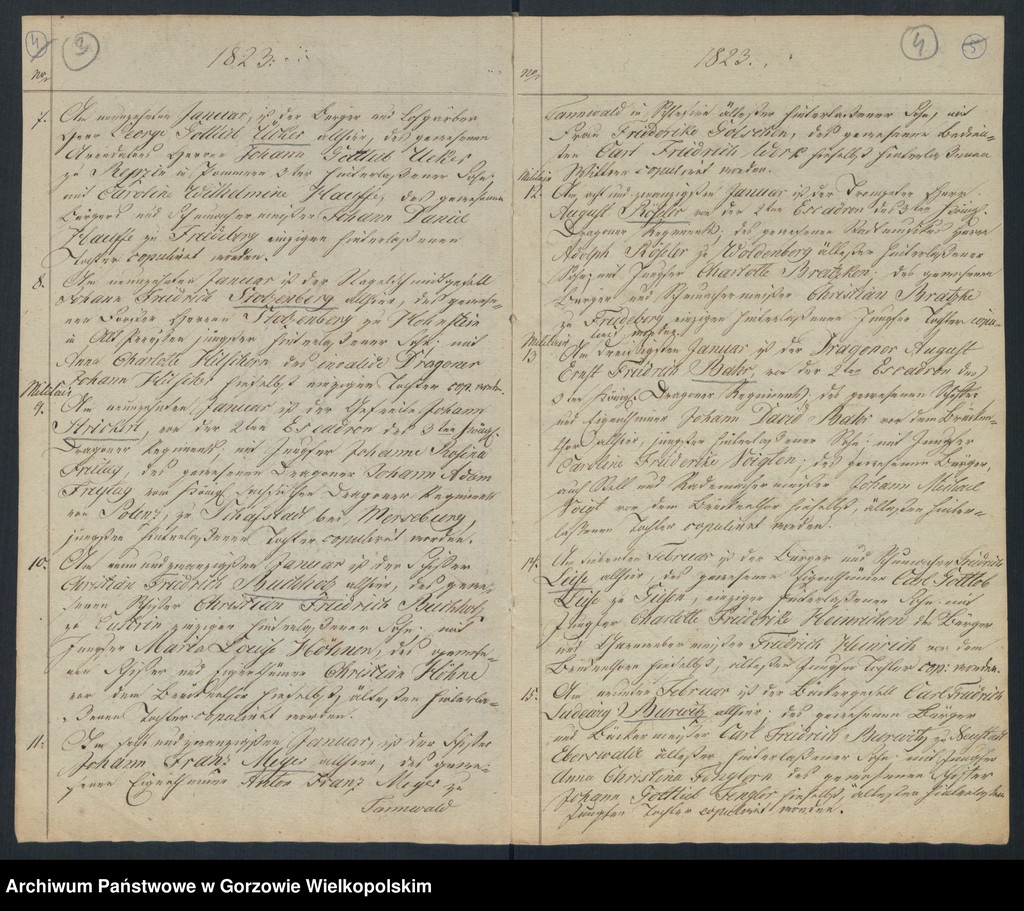 4
3
1823.
No.
7. Am neunzehnten Januar, ist der Bürger und Lohgärber
Herr George Gottlieb Ucker allhier, des gewesenen
Arendators Herrn Johann Gottlieb Ucker
zu in Pommern hinterlaßener Sohn,
mit Caroline Wilhelmine Hauffe, des gewesenen
Bürgers und Schumachermeister Johann Daniel
Hauffe zu Friedeberg einzigen hinterlaßenen
Tochter copuliret worden.
8. Am neunzehnten Januar ist der
Johann Friedrich Stolzenberg allhier, des gewese-
nen Herrn Stolzenberg zu
in jüngster hinterlaßener Sohn, mit
Anna Charlotte des invalide Dragoner
Johann hieselbst einzigen Tochter cop. worden.
Militair
9. Am neunzehnten Januar ist der Gefreite Johann
Strichert, von der 2ten Escadron des 3ten Königl.
Dragoner Regiments, mit Jungfer Johanne Rosina
Freitag, des gewesenen Dragoner Johann Adam
Freytag vom Königl. Sächsischen Dragoner Regiment
von Polenz, zu bei Merseburg,
jüngsten hinterlaßenen Tochter copuliret worden.
10. Am neun und zwanzigsten Januar ist der Schiffer
Christian Friedrich Buchholz allhier, des gewe-
senen Schiffer Christian Friedrich Buchholz
zu Cüstrin einziger hinterlaßener Sohn, mit
Jungfer Maria Louise Höhnen, des gewese-
nen Schiffer und Eigenthümer Christian Höhne
vor dem Brückenthor hieselbst, ältesten hinterla-
ßenen Tochter copuliret worden.
11. Am und zwanzigsten Januar, ist der Schiffer
Johann Franz Meyer allhier, des gewe-
senen Eigenthümer Anton Franz Meyer zu
Tannwald
4
5
1823.
No.
Tannwald in Schlesien ältester hinterlaßener Sohn, mit
Frau Friederike Golschen, des gewesenen Bedien-
ten Carl Friedrich Werk hieselbst hinterlaßenen
Wittwe copuliret worden.
Militair
12. Am acht und zwanzigsten Januar ist der Trompeter Herr
August Rößler von der 2ten Escadron des 3ten Königl.
Dragoner Regiments, des gewesenen Stadtmusikus Herrn
Adolph Rößler zu Woldenberg ältester hinterlaßener
Sohn, mit Jungfer Charlotte Bratzken, des gewesenen
Bürger und Schumachermeister Christian Bratzke
zu Friedeberg einzigen hinterlaßenen Jungfer Tochter copu-
liret worden.
Militair
13. Am dreißigsten Januar ist der Dragoner August
Ernst Friedrich Bahr, von der 2ten Escadron des
3ten Königl. Dragoner Regiments, des gewesenen Schiffer
und Eigenthümer Johann David Bahr vor dem Brücken-
thor allhier, jüngster hinterlaßener Sohn, mit Jungfer
Caroline Friederike Voigten, des gewesenen Bürger,
auch Stell und Rademachermeister Johann Michael
Voigt vor dem Brückenthor hieselbst, ältesten hinter-
laßenen Tochter copuliret worden.
14. Am siebenten Februar ist der Bürger und Schumacher Friedrich
Leise allhier, des gewesenen Eigenthümer Carl Gottlob
Leise zu einziger hinterlaßener Sohn, mit
Jungfer Charlotte Friederike Heinrichen des Bürger
und Friedrich Heinrich vor dem
Brückenthor hieselbst, ältesten Jungfer Tochter cop: worden.
15. Am neunten Februar ist der Bäckergesell Carl Friedrich
Ludewig Burwitz allhier, des gewesenen Bürger
und Bäckermeister Carl Friedrich Burwitz, zu Neustadt
Eberswalde ältester hinterlaßener Sohn mit Jungfer
Anna Christina Fenglern des gewesenen Schiffer
Johann Gottlieb Fengler hieselbst, ältesten hinterlaßenen
Jungfer Tochter copuliret worden.
Archiwum Państwowe w Gorzowie Wielkopolskim